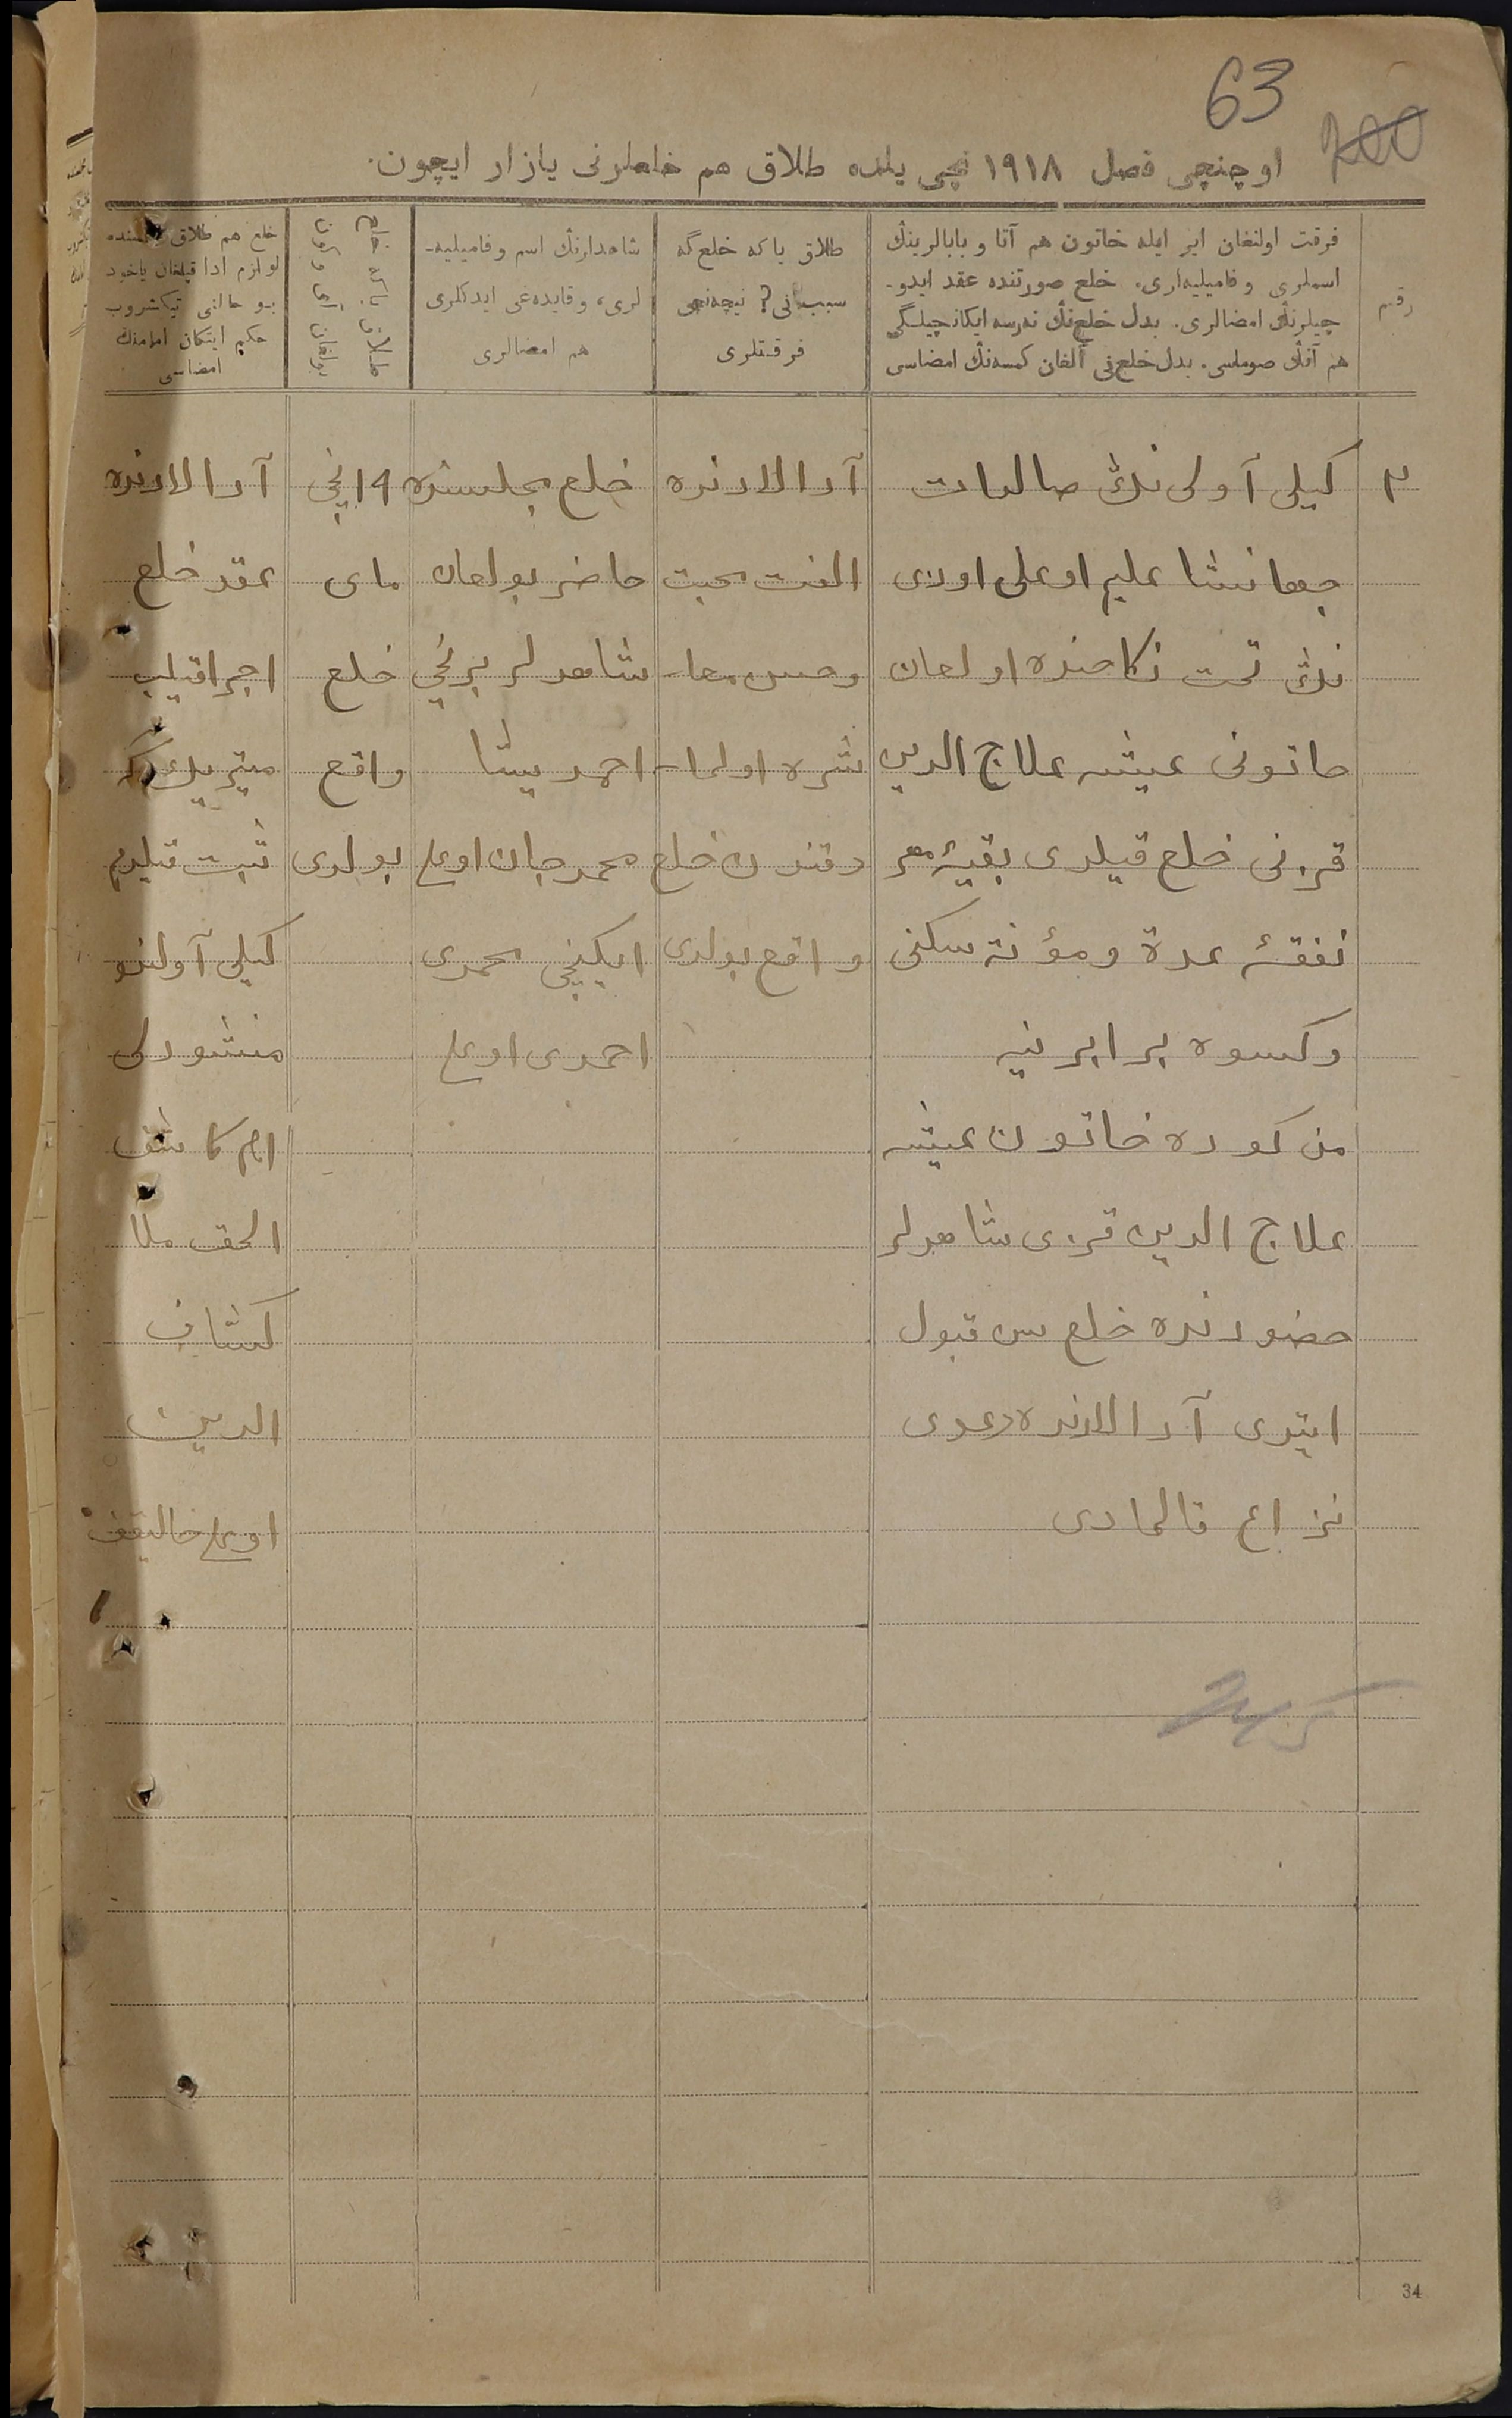 63
200
اوچنچی فصل ۱۹۱۸ نچی یلده طلاق هم خلعلرنی یازار ایچون.
رقم
فرقت اولنغان ایر ایله خاتون هم آتا و بابالرینڭ
اسملری و فامیلیه‌لری. خلع صورتنده عقد ایدو-
چیلرنڭ امضالری. بدل خلع‌نڭ نەرسه ایکانچیلگی
هم آنڭ صوماسی. بدل خلع‌نی آلغان کمسه‌نڭ امضاسی
طلاق یا که خلع گه
سبب نی؟ نیچه‌نچی
فرقتلری
شاهدلرنڭ اسم و فامیلیه-
لری، و قایده‌غی ایدکلری
هم امضالری
خلع هم طلاق
لوازم ادا قیلغان یاخود
بو حالنی تیکشروب
حکم ایتکان امامنڭ
امضاسی
۲
کیلی آولی نڭ صالدات
جهانشا علیم اوغلی اوزی
نڭ تحت نکاحنده اولغان
خاتونی عیشه علاج الدین
قزنی خلع قیلدی بقیهٔ مهر
نفقهٔ عدة و مؤنة سکنی
وکسوه برابرینه
مذکوره خاتون عیشه
علاج الدین قزی شاهدلر
حضورنده خلع‌سن قبول
ایتدی آرالارنده دعوی
نزاع قالمادی
آرالارنده
الفت محبت
وحسن معا-
شره اولما-
دقندن خلع
واقع بولدی
خلع مجلسنده
حاضر بولغان
شاهدلر برنچی
احمد پیشا
محمدجان اوغلی
ایکینچی محمدی
احمدی اوغلی
۱۹نچی
مای
خلع
واقع
بولدی
آرالارنده
عقد خلع
اجرا قیلیب
میتریك که
ثبت قیلدم
کیلی آولنڭ
منشورلی
الحق ملا
کشاف
الدین
اوغلی خالیقف
34